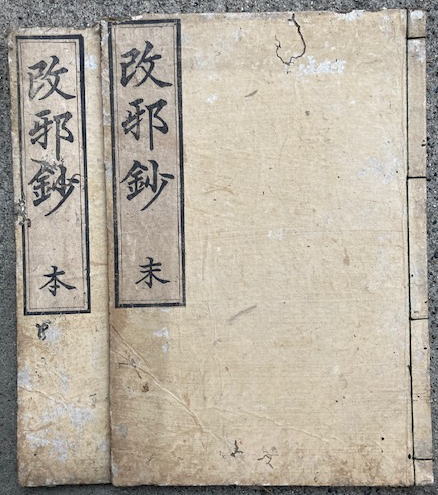 改邪鈔 本
改邪鈔 末